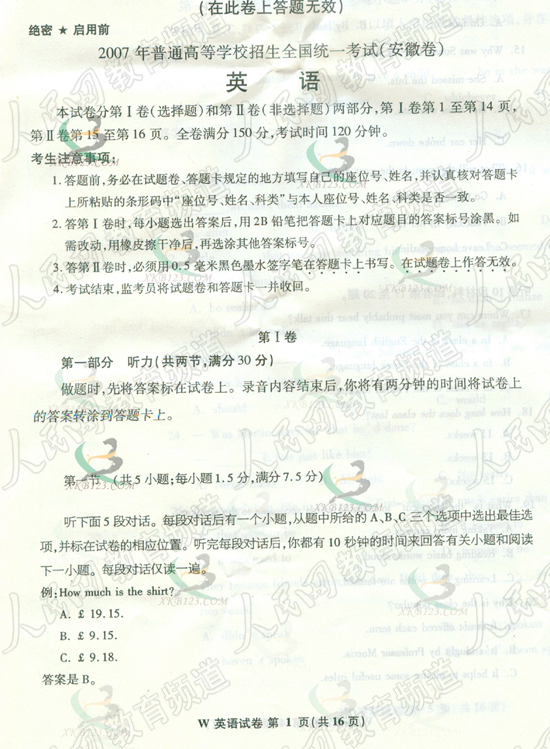 (在此卷上答题无效)
绝密 ★ 启用前
2007 年普通高等学校招生全国统一考试(安徽卷)
英 语
本试卷分第Ⅰ卷(选择题)和第Ⅱ卷(非选择题)两部分,第Ⅰ卷第 1 至第 14 页,
第Ⅱ卷第 15 至第 16 页。全卷满分 150 分,考试时间 120 分钟。
考生注意事项:
1. 答题前,务必在试题卷、答题卡规定的地方填写自己的座位号、姓名,并认真核对答题卡
上所粘贴的条形码中“座位号、姓名、科类”与本人座位号、姓名、科类是否一致。
2. 答第Ⅰ卷时,每小题选出答案后,用 2B 铅笔把答题卡上对应题目的答案标号涂黑。如
需改动,用橡皮擦干净后,再选涂其他答案标号。
3. 答第Ⅱ卷时,必须用 0.5 毫米黑色墨水签字笔在答题卡上书写。在试题卷上作答无效。
4. 考试结束,监考员将试题卷和答题卡一并收回。
第Ⅰ卷
第一部分 听力(共两节,满分 30 分)
做题时,先将答案标在试卷上。录音内容结束后,你将有两分钟的时间将试卷上
的答案转涂到答题卡上。
第一节 (共 5 小题;每小题 1.5 分,满分 7.5 分)
听下面 5 段对话。每段对话后有一个小题,从题中所给的 A、B、C 三个选项中选出最佳选
项,并标在试卷的相应位置。听完每段对话后,你都有 10 秒钟的时间来回答有关小题和阅读
下一小题。每段对话仅读一遍。
例:How much is the shirt?
A. £ 19.15.
B. £ 9.15.
C. £ 9.18.
答案是 B。
W 英语试卷 第 1 页(共 16 页)
人民网教育频道
XKB123.COM